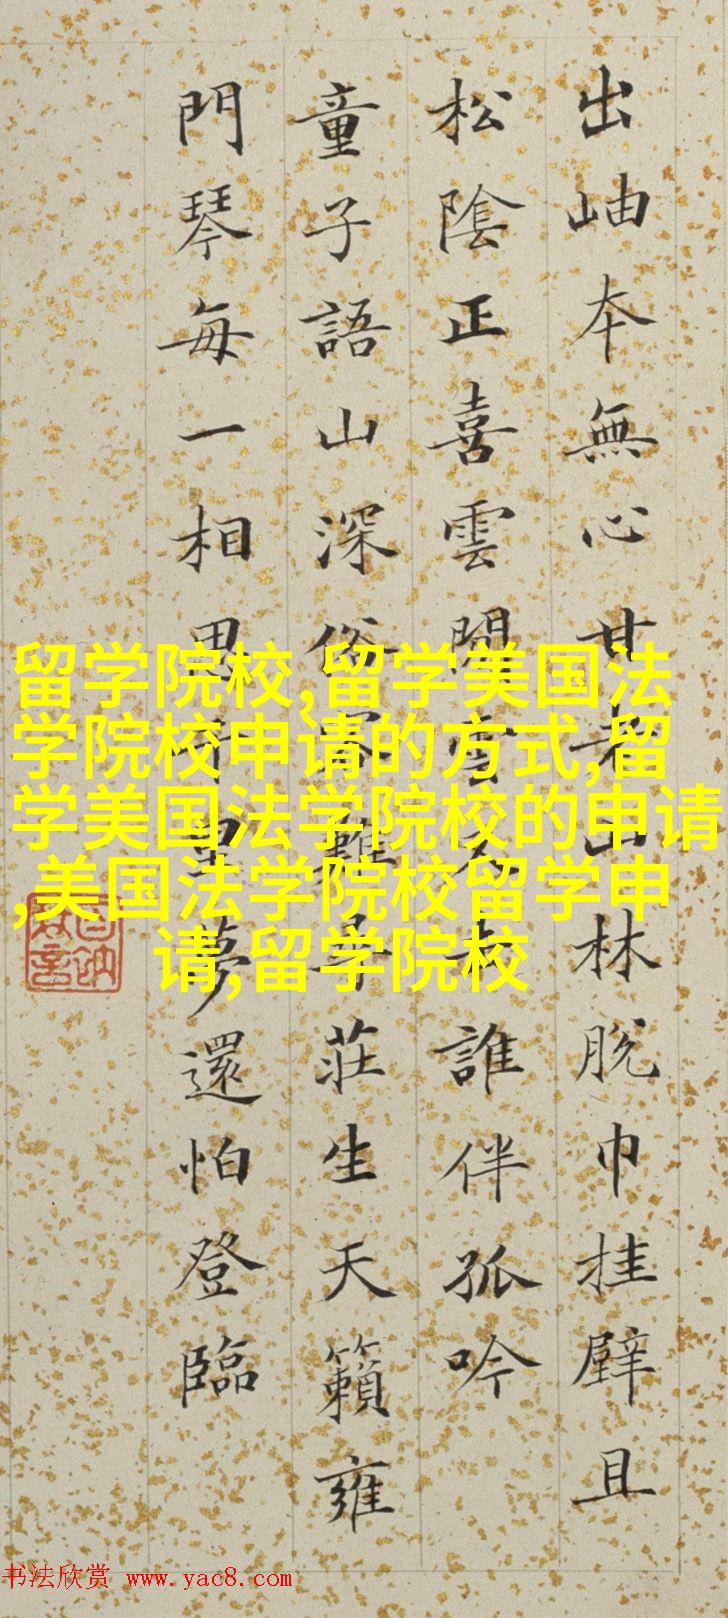 出岫本無心甘老山林脫巾挂壁且
松陰正喜雲閒雪誰伴孤吟
童子語山深俗界難尋莊生天籟雍
門琴每一相思千里夢還怕登臨
留学院校,留学美国法
学院校申请的方式,留
学美国法学院校的申请
,美国法学院校留学申
请,留学院校
书法欣赏 www.yac8.com